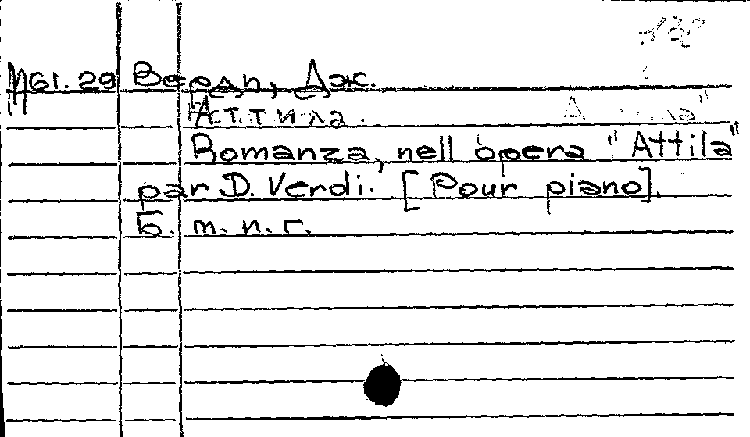 М61.29 Верди, Дж.
Аттила.
Romanza, nell opera "Attila"
par D. Verdi. [Pour piano].
Б. м. и. г.